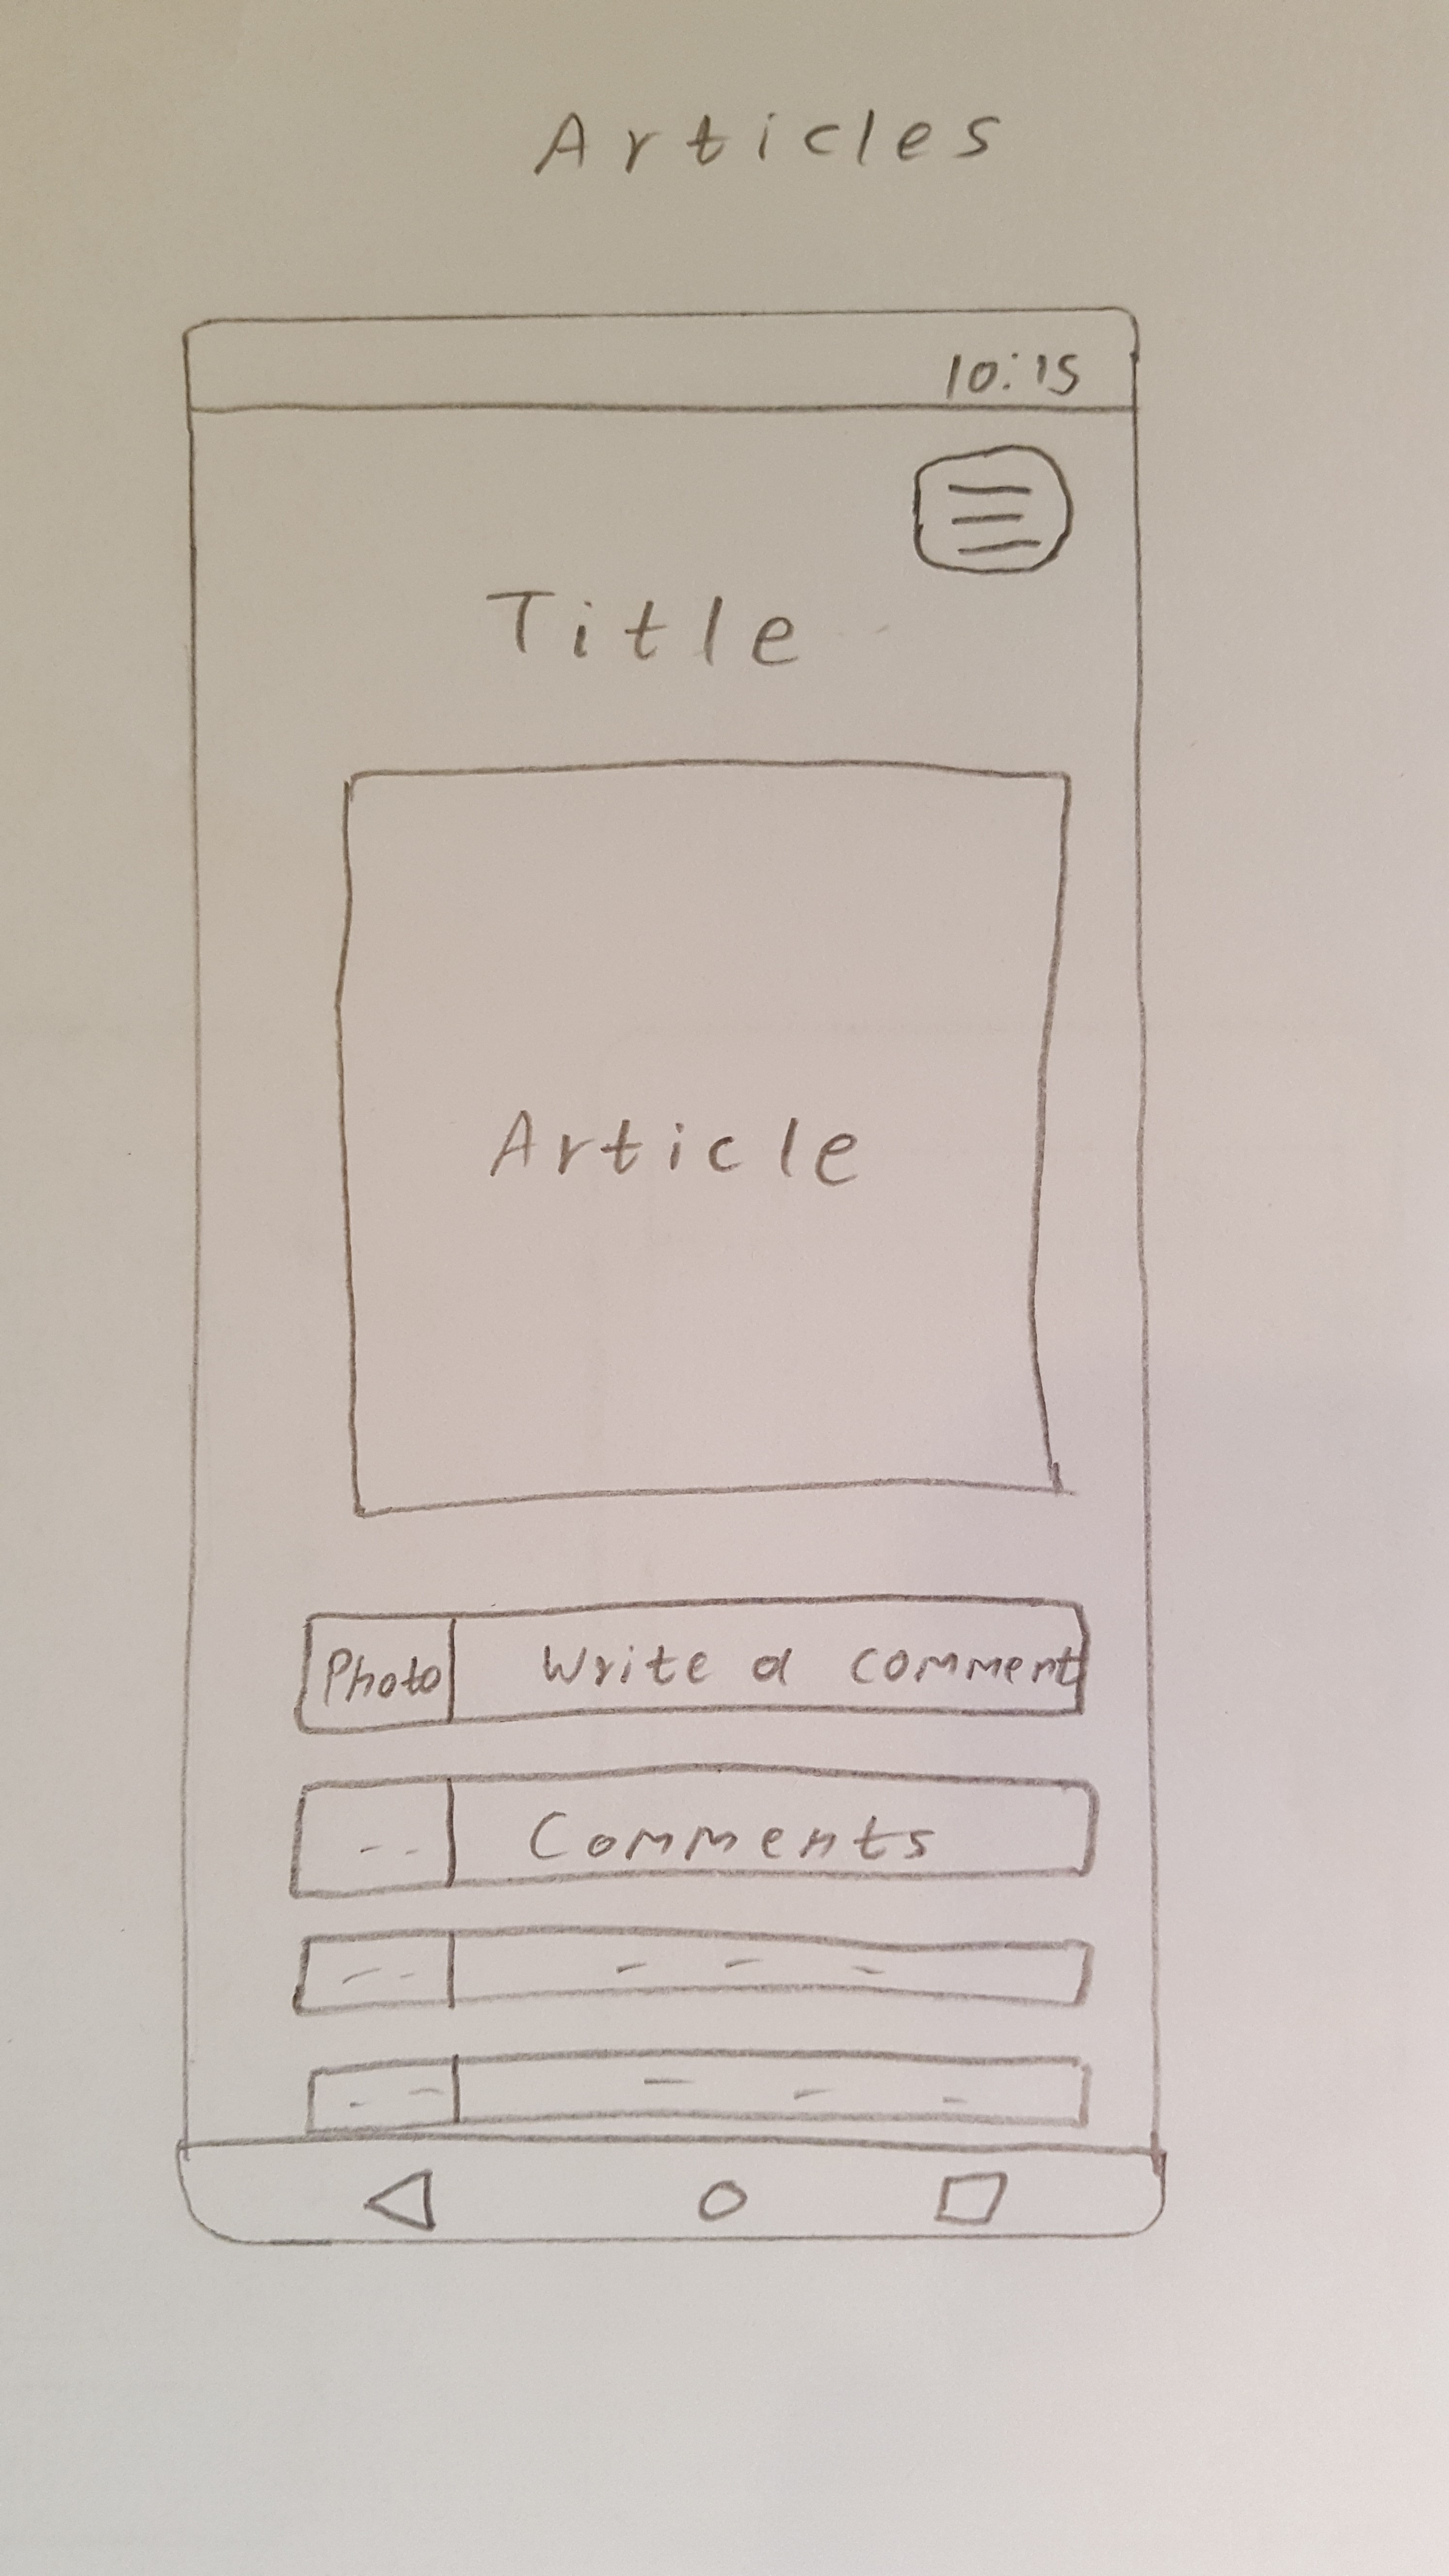 Articles
10:15
Title
Article
Photo Write a comment
Comments